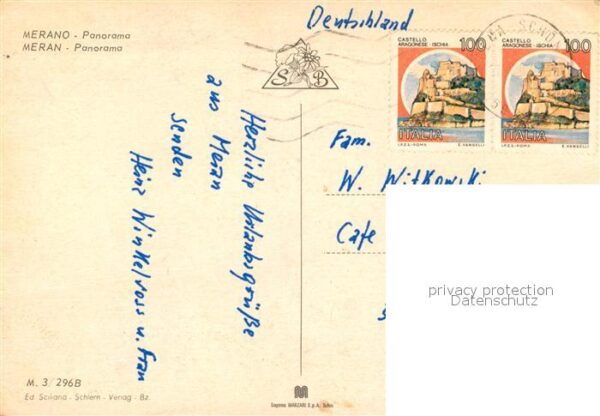 MERANO - Panorama
MERAN - Panorama
Deutschland
CASTELLO
ARAGONESE - ISCHIA 100
ITALIA
I.P.Z.S. - ROMA E. VANGELLI
CASTELLO
ARAGONESE - ISCHIA 100
ITALIA
I.P.Z.S. - ROMA E. VANGELLI
S B
Herzliche Urlaubsgrüße
aus Meran
senden
Heinz Winkelvoss u. Frau
Fam.
W. Witkowski
Cafe
privacy protection
Datenschutz
M. 3/296B
Ed. Sciliana - Schlern - Verlag - Bz.